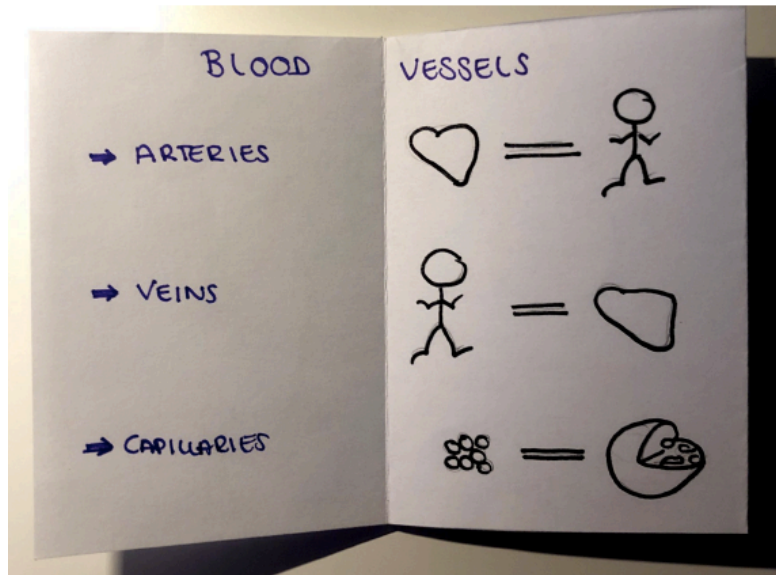 BLOOD VESSELS
→ ARTERIES
→ VEINS
→ CAPILLARIES